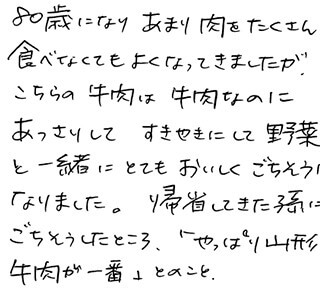 80歳になり あまり 肉を たくさん
食べなくても よくなってきましたが、
こちらの 牛肉は 牛肉なのに
あっさりして すきやきにして 野菜
と 一緒に とても おいしく ごちそうに
なりました。 帰省してきた孫に
ごちそうしたところ、「やっぱり山形
牛肉が一番」とのこと。